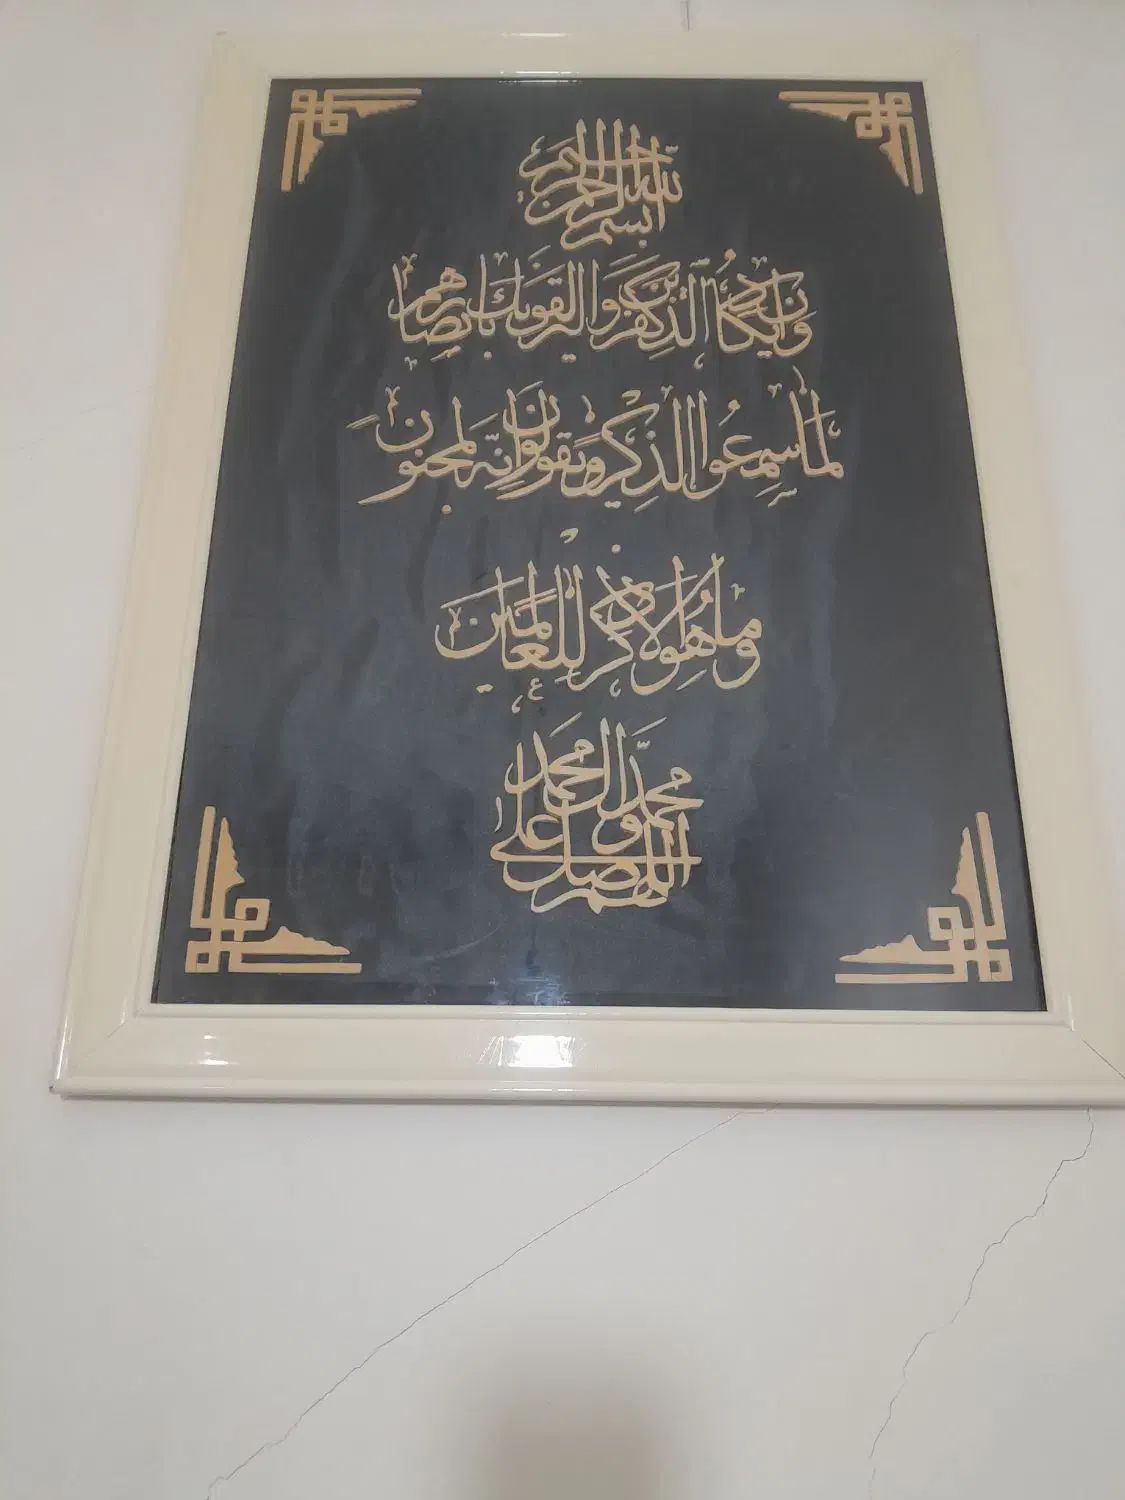 بسم الله الرحمن الرحیم
وَإِن يَكَادُ الَّذِينَ كَفَرُوا لَيُزْلِقُونَكَ بِأَبْصَارِهِمْ
لَمَّا سَمِعُوا الذِّكْرَ وَيَقُولُونَ إِنَّهُ لَمَجْنُونٌ
وَمَا هُوَ إِلَّا ذِكْرٌ لِلْعَالَمِينَ
اللهم صل علی محمد وآل محمد